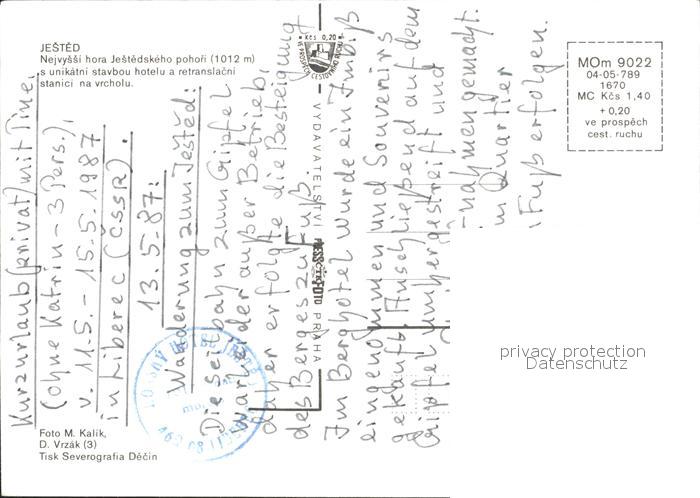 JEŠTĚD
Nejvyšší hora Ještědského pohoří (1012 m)
s unikátní stavbou hotelu a retranslační
stanicí na vrcholu.
Kčs 0,20
MOm 9022
04-05-789
1670
MC Kčs 1,40
+ 0,20
ve prospěch
cest. ruchu
Kurzurlaub (privat) mit Tine,
(ohne Katrin - 3 Pers.)
v. 11.5. - 15.5.1987
in Liberec (ČSSR).
13.5.87:
Wanderung zum Ještěd:
Die Seilbahn zum Gipfel
war leider außer Betrieb,
daher erfolgte die Besteigung
des Berges zu Fuß.
Im Berghotel wurde ein Imbiß
eingenommen und Souvenirs
gekauft. Anschließend auf dem
Gipfel umhergestreift und
-nahmen gemacht.
m Quartier
Fuß erfolgen.
VYDAVATELSTVÍ PRESSFOTO PRAHA
Foto M. Kalík,
D. Vrzák (3)
Tisk Severografia Děčín
463 08 LIBEREC
privacy protection
Datenschutz